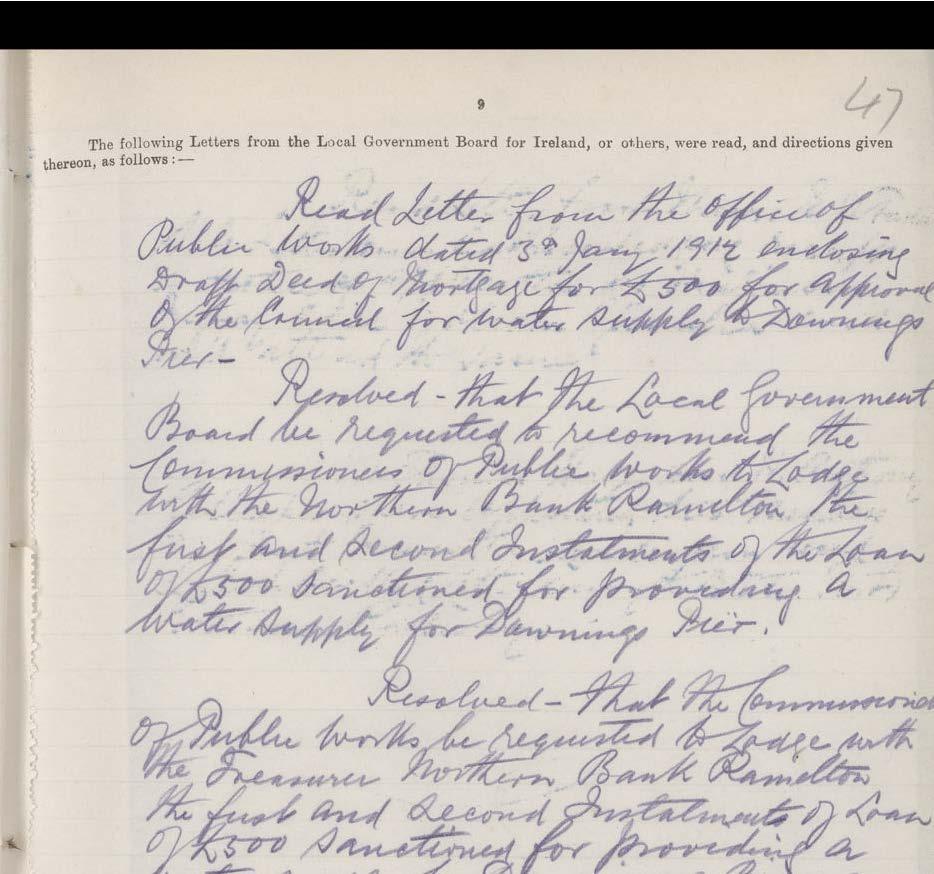 9
47
The following Letters from the Local Government Board for Ireland, or others, were read, and directions given
thereon, as follows:—
Read Letter from the Office of
Public Works dated 3rd Jany 1912 enclosing
Draft Deed of Mortgage for £500 for approval
of the Council for water supply to Downings
Pier-
Resolved - that the Local Government
Board be requested to recommend the
Commissioners of Public Works to Lodge
with the Northern Bank Ramelton the
first and second Instalments of the Loan
of £500 sanctioned for providing a
water supply for Downings Pier.
Resolved - that the Commissioners
of Public Works be requested to Lodge with
the Treasurer Northern Bank Ramelton
the first and second Instalments of Loan
of £500 sanctioned for providing a